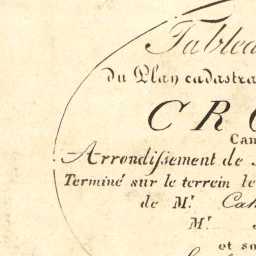 Tablea
du Plan cadastra
CR
Can
Arrondissement de
Terminé sur le terrein le
de Mr. Cah
Mr.
et so